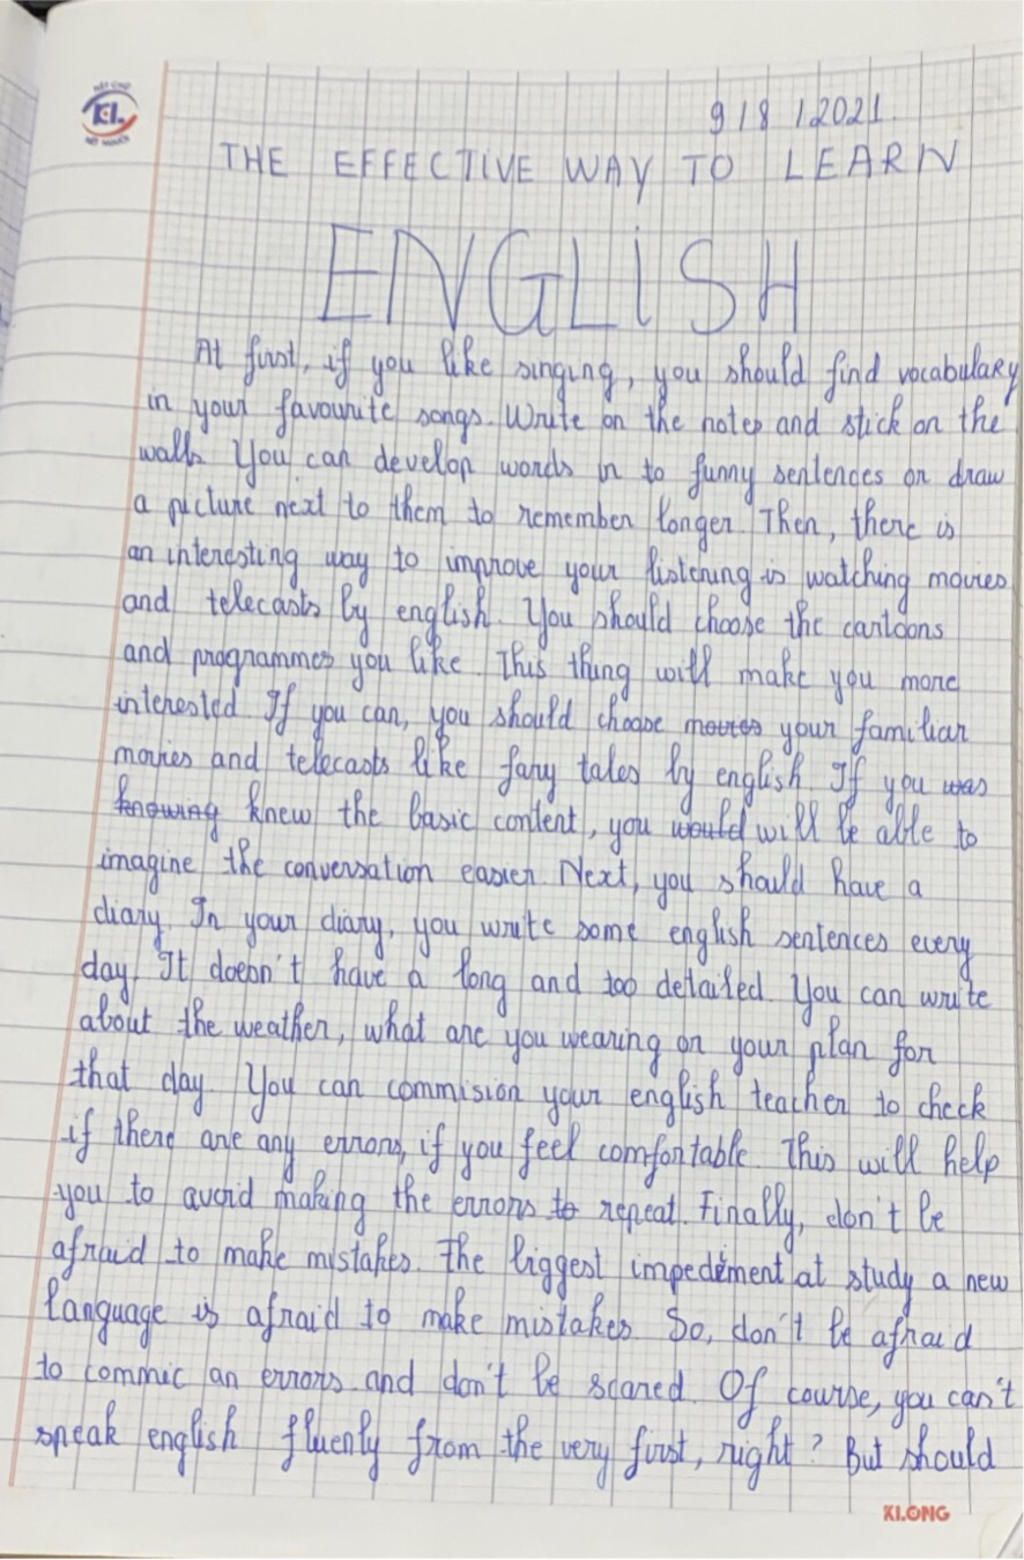 NÉT CHỮ
KL
NẾT NGƯỜI
9/8/2021.
THE EFFECTIVE WAY TO LEARN
ENGLISH
At first, if you like singing, you should find vocabulary
in your favourite songs. Write on the notes and stick on the
walls. You can develop words in to funny sentences or draw
a picture next to them to remember longer. Then, there is
an interesting way to improve your listening is watching movies
and telecasts by english. You should choose the cartoons
and programmes you like. This thing will make you more
interested. If you can, you should choose movies your familiar
movies and telecasts like fary tales by english. If you was
knowing knew the basic content, you would will be able to
imagine the conversation easier. Next, you should have a
diary. In your diary, you write some english sentences every
day. It doesn't have a long and too detailed. You can write
about the weather, what are you wearing or your plan for
that day. You can commision your english teacher to check
if there are any errors, if you feel comfortable. This will help
you to avoid making the errors to repeat. Finally, don't be
afraid to make mistakes. The biggest impediment at study a new
language is afraid to make mistakes. So, don't be afraid
to commic an errors and don't be scared. Of course, you can't
speak english fluenly from the very first, right? But should
KLONG